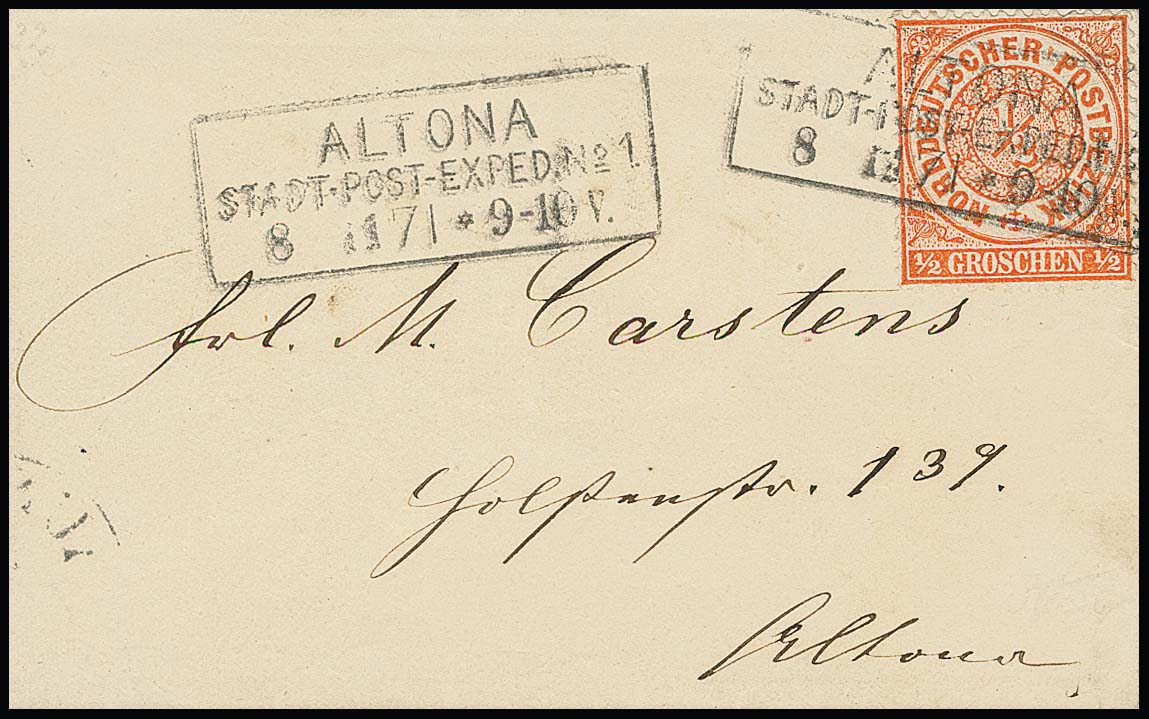 ALTONA
STADT-POST-EXPED. No 1.
8 11 71 * 9-10 V.
ALTONA
STADT-POST-EXPED. No
8 11 71 * 9-10 V.
NORDDEUTSCHER POSTBEZIRK
1/2
1/2 GROSCHEN 1/2
Frl. M. Carstens
Holstenstr. 139.
Altona